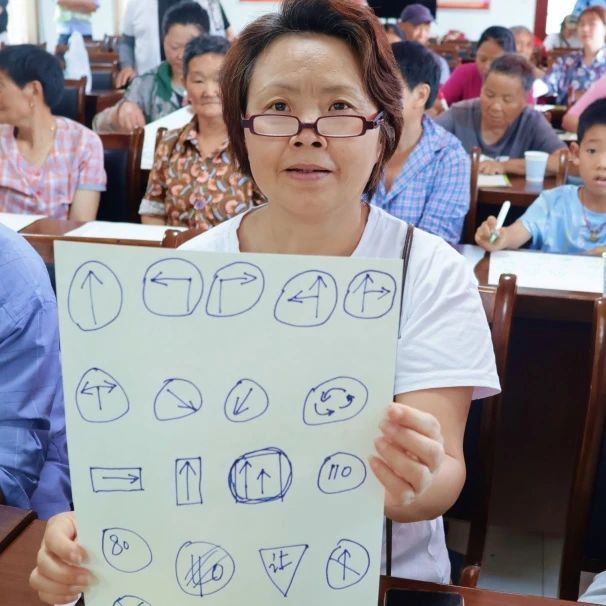 110
80 40 让